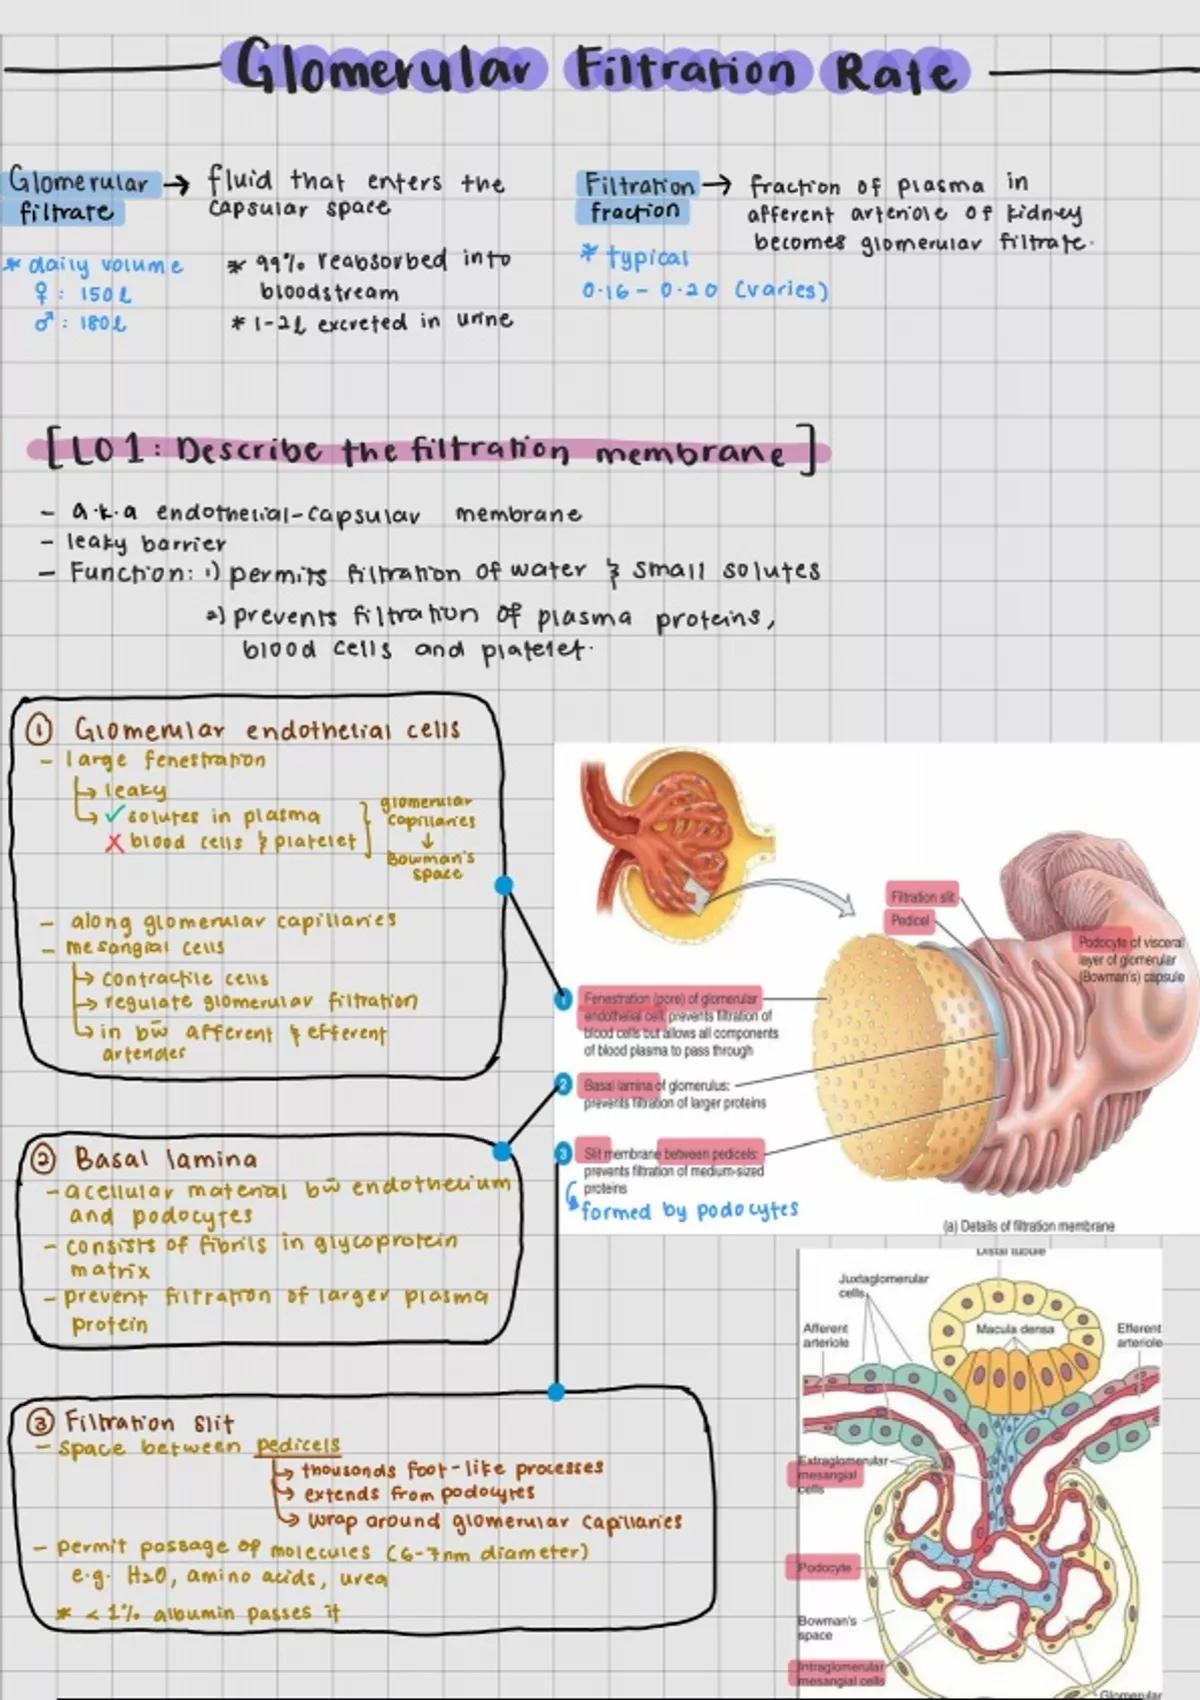 Glomerular Filtration Rate
Glomerular → fluid that enters the
filtrate capsular space
* daily volume
♀ : 150l
♂ : 180l
* 99% reabsorbed into
bloodstream
* 1-2l excreted in urine
Filtration → fraction of plasma in
fraction afferent arteriole of kidney
becomes glomerular filtrate.
* typical
0.16 - 0.20 (varies)
[LO1: Describe the filtration membrane]
- a.k.a endothelial-capsular membrane
- leaky barrier
- Function: 1) permits filtration of water & small solutes
2) prevents filtration of plasma proteins,
blood cells and platelet.
① Glomerular endothelial cells
- large fenestration
↳ leaky
↳ ✓ solutes in plasma
✗ blood cells & platelet
glomerular
capillaries
↓
Bowman's
space
- along glomerular capillaries
- mesangial cells
↳ contractile cells
↳ regulate glomerular filtration
↳ in bw̄ afferent & efferent
arterioles
② Basal lamina
- acellular material bw̄ endothelium
and podocytes
- consists of fibrils in glycoprotein
matrix
- prevent filtration of larger plasma
protein
③ Filtration slit
- space between pedicels
↳ thousands foot-like processes
↳ extends from podocytes
↳ wrap around glomerular capillaries
- permit passage of molecules (6-7nm diameter)
e.g. H2O, amino acids, urea
* < 1% albumin passes it
Filtration slit
Pedicel
Podocyte of visceral
layer of glomerular
(Bowman's) capsule
1 Fenestration (pore) of glomerular
endothelial cell: prevents filtration of
blood cells but allows all components
of blood plasma to pass through
2 Basal lamina of glomerulus:
prevents filtration of larger proteins
3 Slit membrane between pedicels:
prevents filtration of medium-sized
proteins
formed by podocytes
(a) Details of filtration membrane
Distal tubule
Juxtaglomerular
cells
Afferent
arteriole
Macula densa
Efferent
arteriole
Extraglomerular
mesangial
cells
Podocyte
Bowman's
space
Intraglomerular
mesangial cells
Glomerular